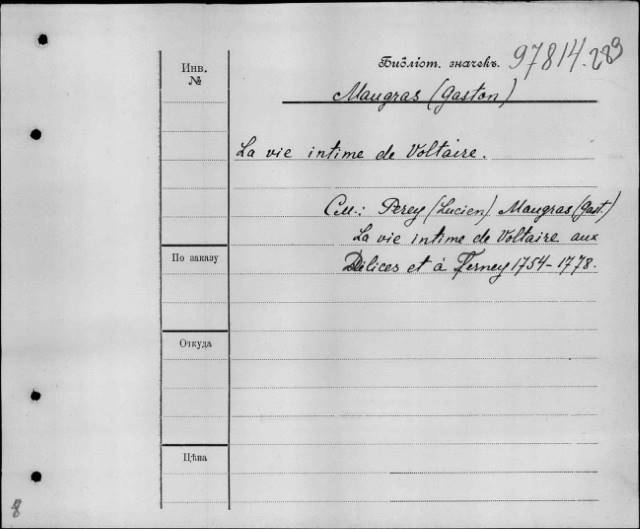 Инв. №
Библіот. значекъ. 97814.289
Maugras (Gaston)
La vie intime de Voltaire.
См.: Perey (Lucien). Maugras (Gast.)
La vie intime de Voltaire aux
Délices et à Ferney 1754-1778.
По заказу
Откуда
Цѣна
8